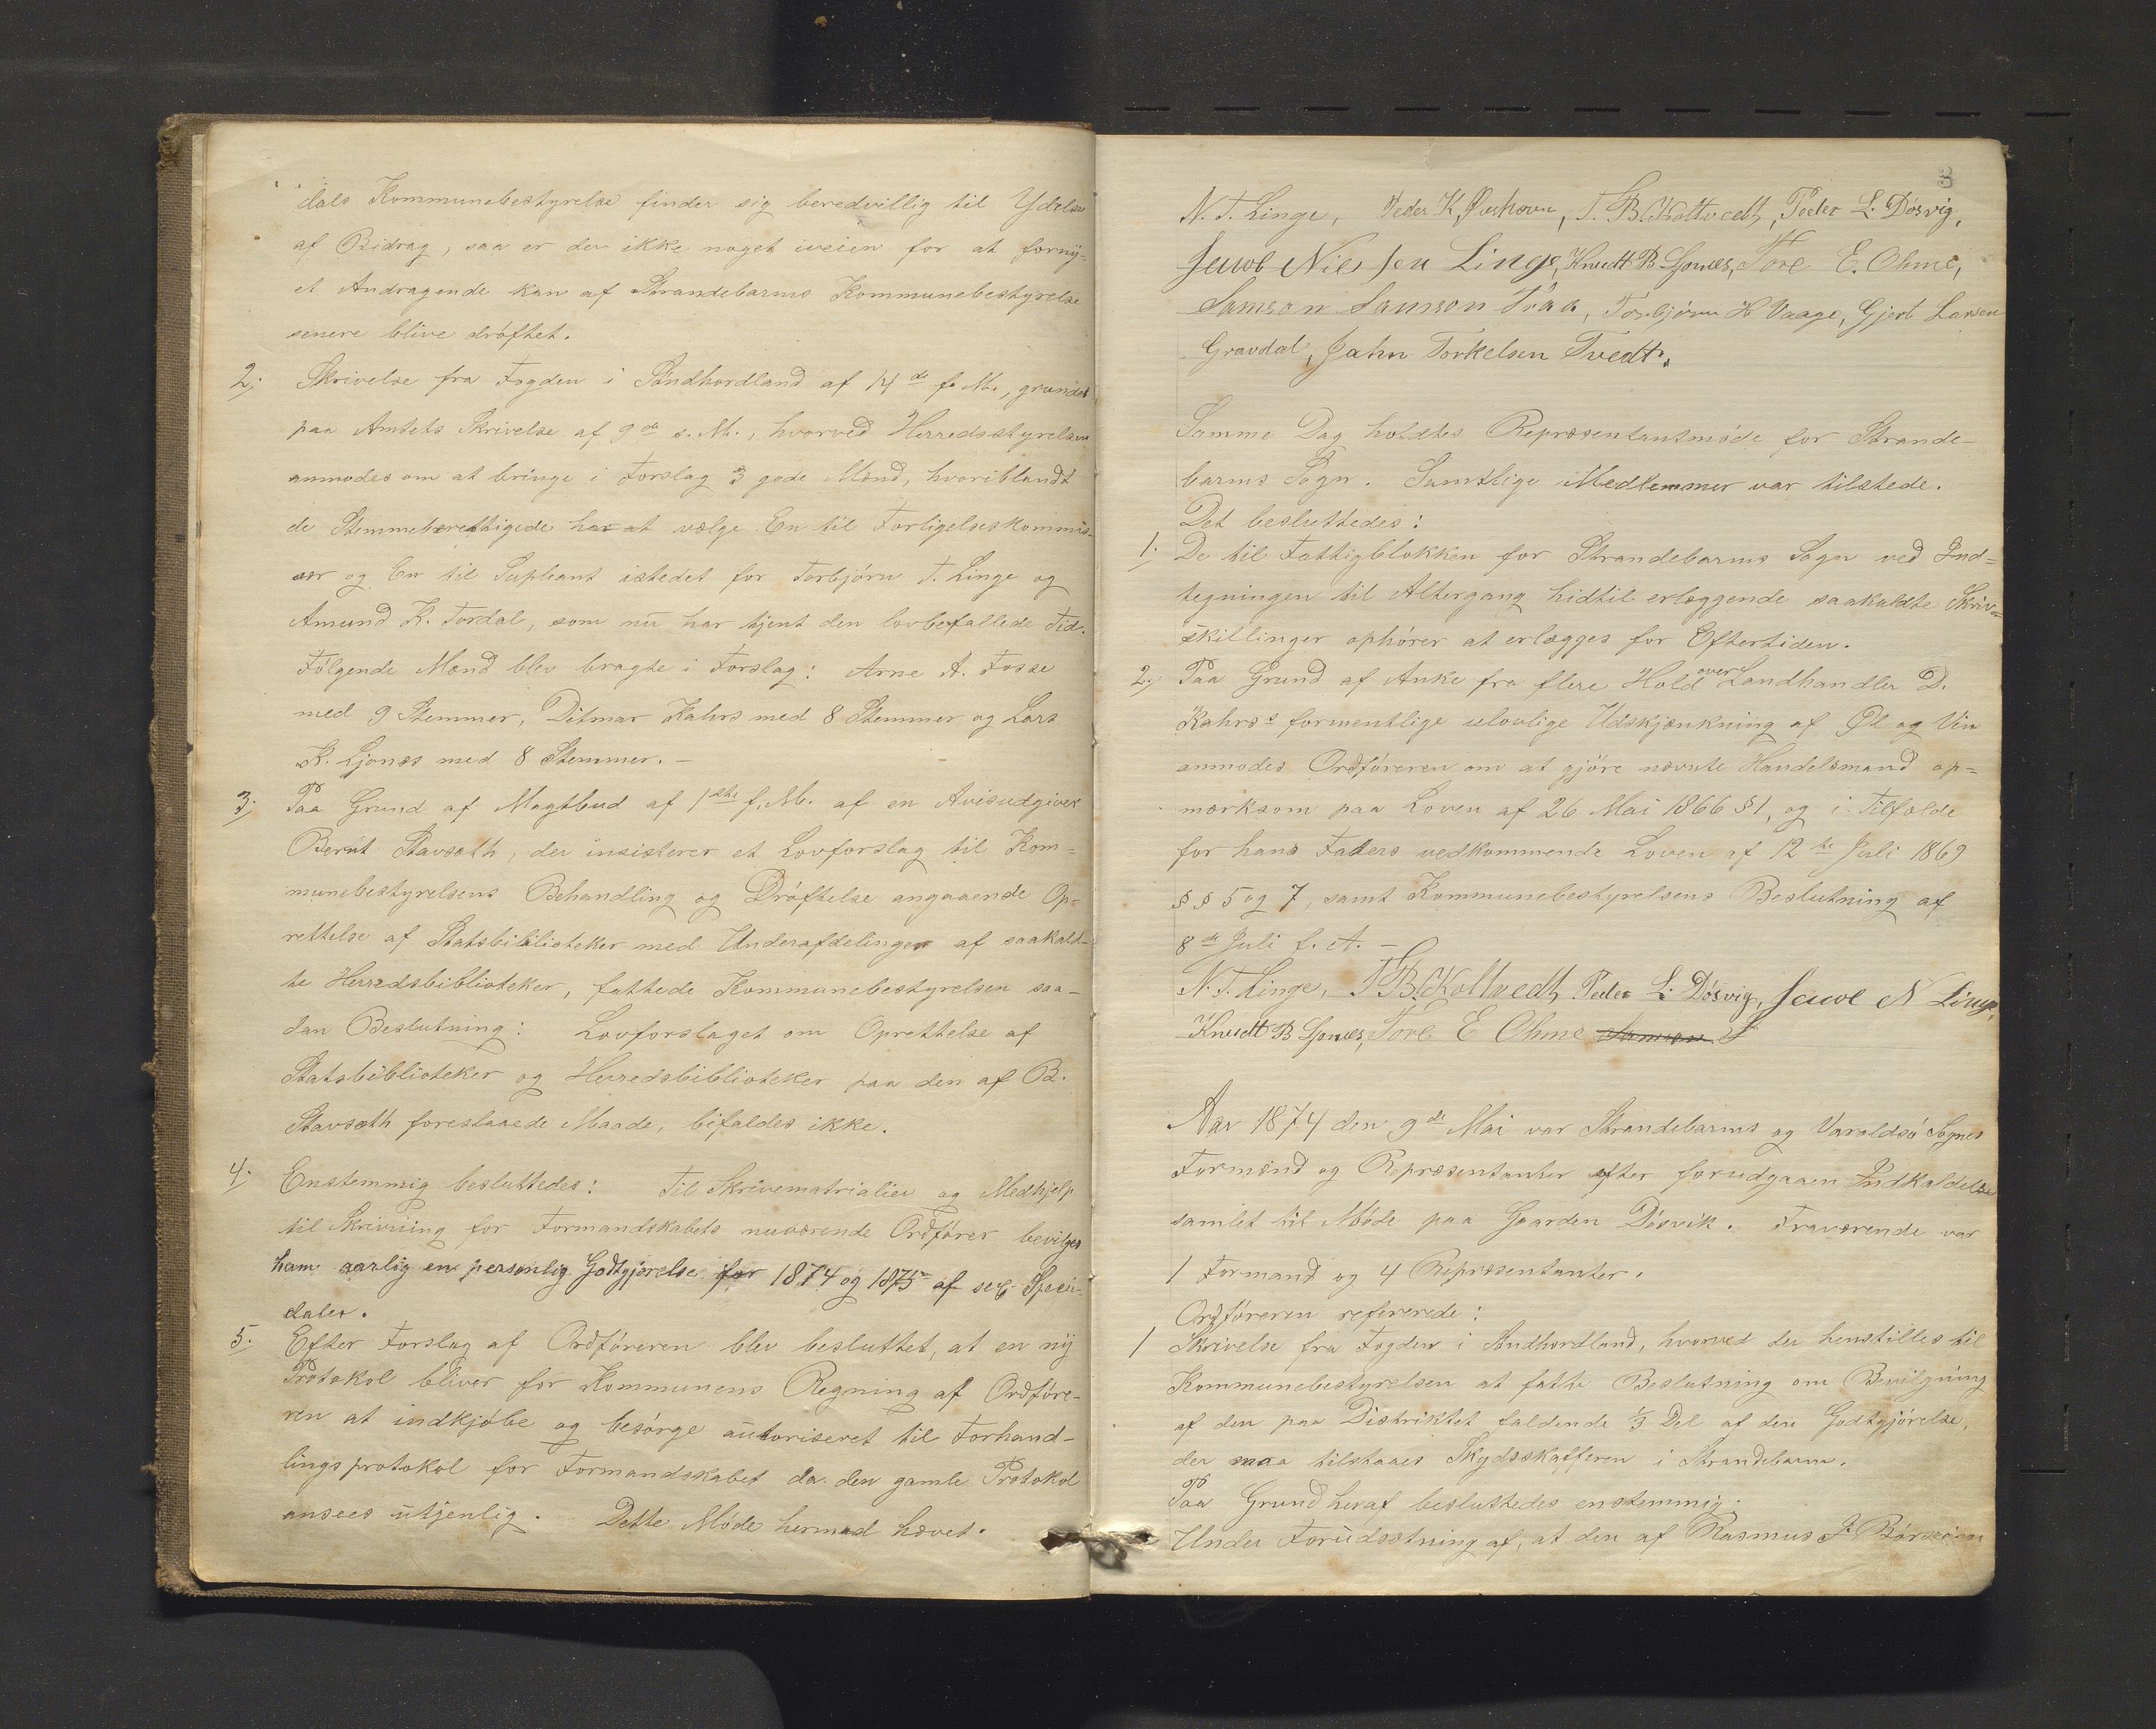 dals Kommunebestyrelse finder sig beredvillig til Ydelse
af Bidrag, saa er der ikke noget iveien for at forny-
et Andragende kan af Strandebarms Kommunebestyrelse
senere blive dröftet.
2. Skrivelse fra Fogden i Söndhordland af 14de f. M., grundet
paa Amtets Skrivelse af 9de s. M., hvorved Herredsstyrelsen
anmodes om at bringe i Forslag 3 gode Mænd, hvoriblandt
de Stemmeberettigede har at vælge En til Forligelseskommis-
ær og En til Supleant istedet for Torbjörn T. Linge og
Amund K. Fordal, som nu har tjent den lovbefallede Tid.
Følgende Mænd blev bragte i Forslag: Arne A. Fosse
med 9 Stemmer, Ditmar Kahrs med 8 Stemmer og Lars
K. Ljonæs med 8 Stemmer. –
3. Paa Grund af Magtbud af 1ste f. M. af en Avisudgiver
Bernt Stavseth, der insisterer et Lovforslag til Kom-
munebestyrelsens Behandling og Dröftelse angaaende Op-
rettelse af Statsbibilioteker med Underafdelinger af saakald-
te Herredsbiblioteker, fattede Kommunebestyrelsen saa-
dan Beslutning: Lovforslaget om Oprettelse af
Statsbiblioteker og Herredsbiblioteker paa den af B.
Stavseth foreslaaede Maade, bifaldes ikke.
4. Enstemmig besluttedes: Til Skrivematrialier og Medhjelp
til Skrivning for Formandskabets nuværende Ordfører bevilges
ham aarlig en personlig Godtgjörelse for 1874 og 1875 af sex Speci-
daler.
5. Efter Forslag af Ordföreren blev besluttet, at en ny
Protokol bliver for Kommunens Regning af Ordföre-
ren at indkjöbe og besörge autoriseret til Forhand-
lingsprotokol for Formandskabet da den gamle Protokol
ansees utjenlig. Dette Møde hermed hævet.
3
N. T. Linge, Peder K, T. B. Koltvedt, Peder L. Dösvig,
Jacob Nielsen Linge, Knudt B Ljones, Tore E. Ohme,
Samson Samson Traa, Torbjörn H Vaage, Gjert Larsen
Gravdal, John Torkelsen Tvedt.
Samme Dag holdtes Repræsentantmöde for Strande-
barms Sogn. Samtlige Medlemmer var tilstede.
Det besluttedes:
1. De til Fattigblokken for Strandebarms Sogn ved Ind-
tegningen til Altergang hidtil erlæggende saakaldte Skriv-
skillinger ophörer at erlægges for Eftertiden.
2. Paa Grund af Anke fra flere Hold over Landhandler D.
Kahrs's formentlige ulovlige Udskjænkning af Øl og Vin
anmodes Ordföreren om at gjöre nævnte Handelsmand op-
mærksom paa Loven af 26 Mai 1866 § 1, og i Tilfælde
for hans Faders vedkommende Loven af 12te Juli 1869
§ § 5 og 7, samt Kommunebestyrelsens Beslutning af
8de Juli f. A. –
N. T. Linge, T B. Koltvedt, Peder L. Dösvig, Jacob N Linge,
Knudt B Ljones, Tore E Ohme Samson S
Aar 1874 den 9de Mai var Strandebarms og Varaldsö Sognes
Formænd og Repræsentanter efter forudgaaen Indkaldelse
samlet til Möde paa Gaarden Dösvik. Fraværende var
1 Formand og 4 Repræsentanter.
Ordföreren refererede:
1 Skrivelse fra Fogden i Söndhordland, hvorved der henstilles til
Kommunebestyrelsen at fatte Beslutning om Bevilgning
af den paa Distriktet faldende 1/3 Del af den Godtgjörelse,
der maa tilstaaes Skydsskafferen i Strandebarm.
Paa Grund heraf besluttedes enstemmig:
Under Forudsætning af, at den af Rasmus J.